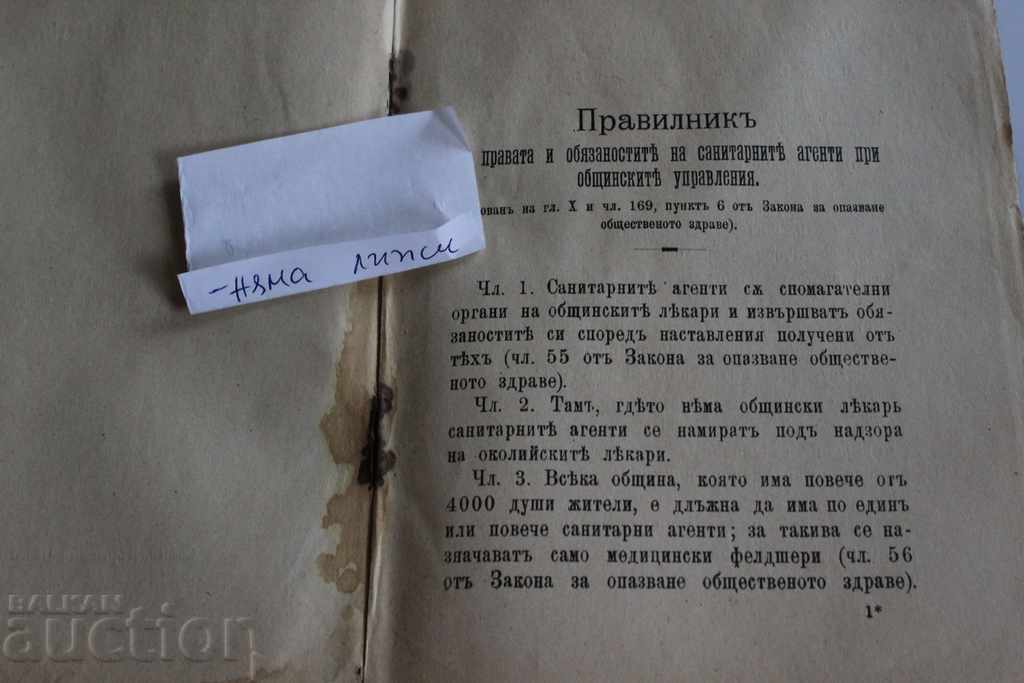 -няма липси
Правилникъ
правата и обязаноститѣ на санитарнитѣ агенти при
общинскитѣ управления.
ованъ на гл. X и чл. 169, пунктъ 6 отъ Закона за опазване
общественото здраве).
Чл. 1. Санитарнитѣ агенти сѫ спомагателни
органи на общинскитѣ лѣкари и извършватъ обя-
заноститѣ си споредъ наставления получени отъ
тѣхъ (чл. 55 отъ Закона за опазване обществе-
ното здраве).
Чл. 2. Тамъ, гдѣто нѣма общински лѣкарь
санитарнитѣ агенти се намиратъ подъ надзора
на околийскитѣ лѣкари.
Чл. 3. Всѣка община, която има повече отъ
4000 души жители, е длъжна да има по единъ
или повече санитарни агенти; за такива се на-
зяачаватъ само медицински фелдшери (чл. 56
отъ Закона за опазване общественото здраве).
1*
BALKAN
auction